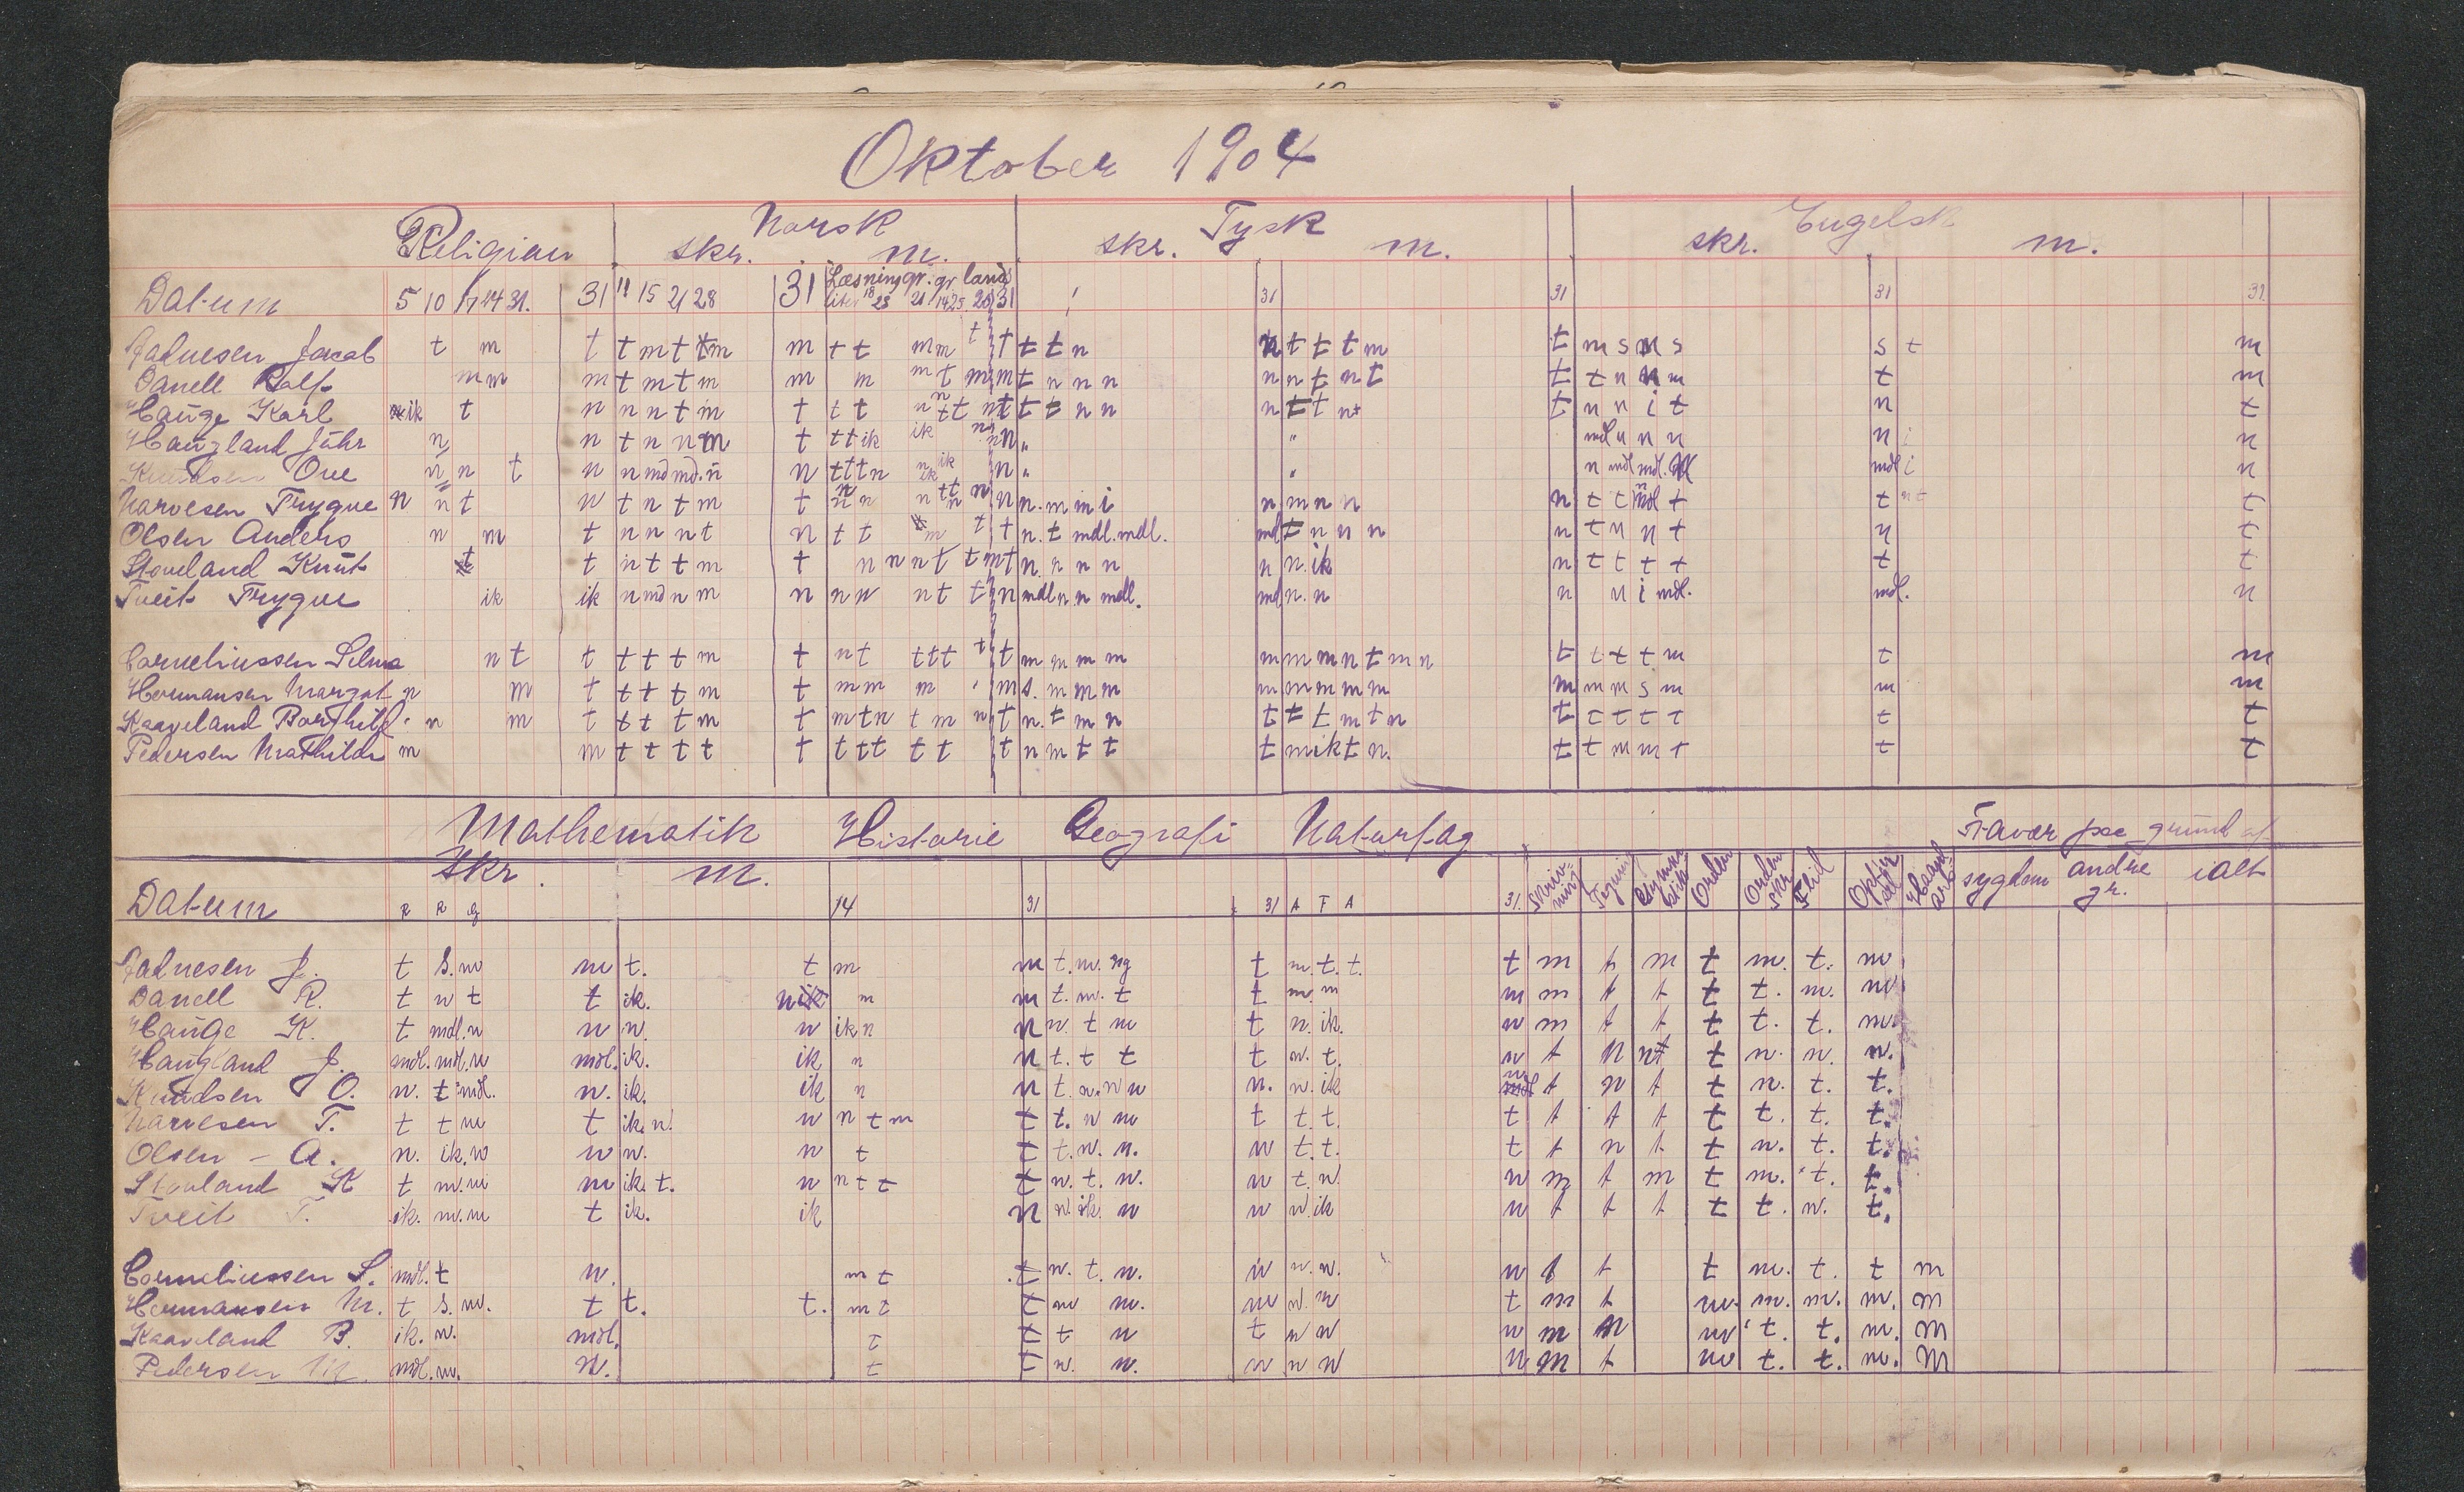 Oktober 1904
Religion Norsk Tysk Engelsk
skr. m. skr. m. skr. m.
Læsning gr. gr land
Datum 5 10 17 14 31. 31 11 15 21 28 31 18 25 21 14 25 28 31 31 31 31 31.
Jacob t m t t m t t m m t t m m t t t t n n t t t m t m s m s s t m
Danell Rolf m m m t m t m m m m t m m t n n n n n t n t t t n n m t m
Hauge Karl ik t n n n t m t t t n n t t n t t t n n n t t n t t n n i t n t
Haugland n n t n n m t t t ik ik n n n " " mdl n n n n i n
Knudsen Ove n n t n n md md. n n t t t n n ik ik n " " n mdl mdl. n mdl i n
Narvesen Trygve n n t n t n t m t n n n n t t n n n n. m m i n m n n n t t mdl t t n t t
Olsen Anders n m t n n n t n t t m t t n. t mdl. mdl. mdl t n n n n t n n t n t
Stoveland Knut t t n t t m t n n n t t m t n. n n n n n. ik n t t t t t t
Tveit Trygve ik ik n md n m n n n n t t n mdl n. n mdl. md n. n n n i mdl. mdl. n
Corneliussen Selma n t t t t t m t n t t t t t t m m m m m m m n t m n t t t t m t m
Hermansen Margot n m t t t t m t m m m m s. m m m m m m m m m m m s m m m
Kaaveland Borghild n m t t t t m t m t n t m n t n. t m n t t t m t n t t t t t t t
Pedersen Mathilde m m t t t t t t t t t t t n m t t t m ik t n. t t m m t t t
Mathematik Historie Geografi Naturfag
Fravær paa grund af
skr. m.
Skrivning Tegning Gymnastik Orden Orden skr. Flid Opførsel Haandarb. sygdom andre gr. ialt
Datum R R g 14 31 31 A F A 31.
J. t s. m m t. t m m t. m. ng t m. t. t. t m t m t m. t. m
Danell R. t n t t ik. n ik m m t. m. t t m. m m m t t t t. m. m
Hauge K. t mdl. n n n. n ik n n n. t m t n. ik. n m t t t t. t. m
Haugland J. mdl. mdl. n mdl. ik. ik n n t. t t t n. t. n t n nt t n. n. n.
Knudsen O. n. t mdl. n. ik. ik n n t. n. n n n. n. ik n mdl t n t t n. t. t.
Narvesen T. t t m t ik. n. n n t m t t. n m t t. t. t t t t t t. t. t.
Olsen - A. n. ik. n n n. n t t t. n. n. n t. t. t t n t t n. t. t.
Stovland K t m. m m ik. t. n n t t t n. t. n. n t. n. n m t m t m. t. t.
Tveit T. ik. m. m t ik. ik n n. ik. n n n. ik n t t t t t. n. t.
Corneliussen S. mdl. t n. m t t n. t. n. n n. n. n t t t m. t. t m
Hermansen M. t s. m. t t. t. m t t m m. m n. m t m t m. m. m. m. m
Kaaveland B. ik. n. mdl. t t t n t n n n m n m t. t. m. m
Pedersen M. mdl. m. n. t t n. n. n n n n m t m t. t. m. m